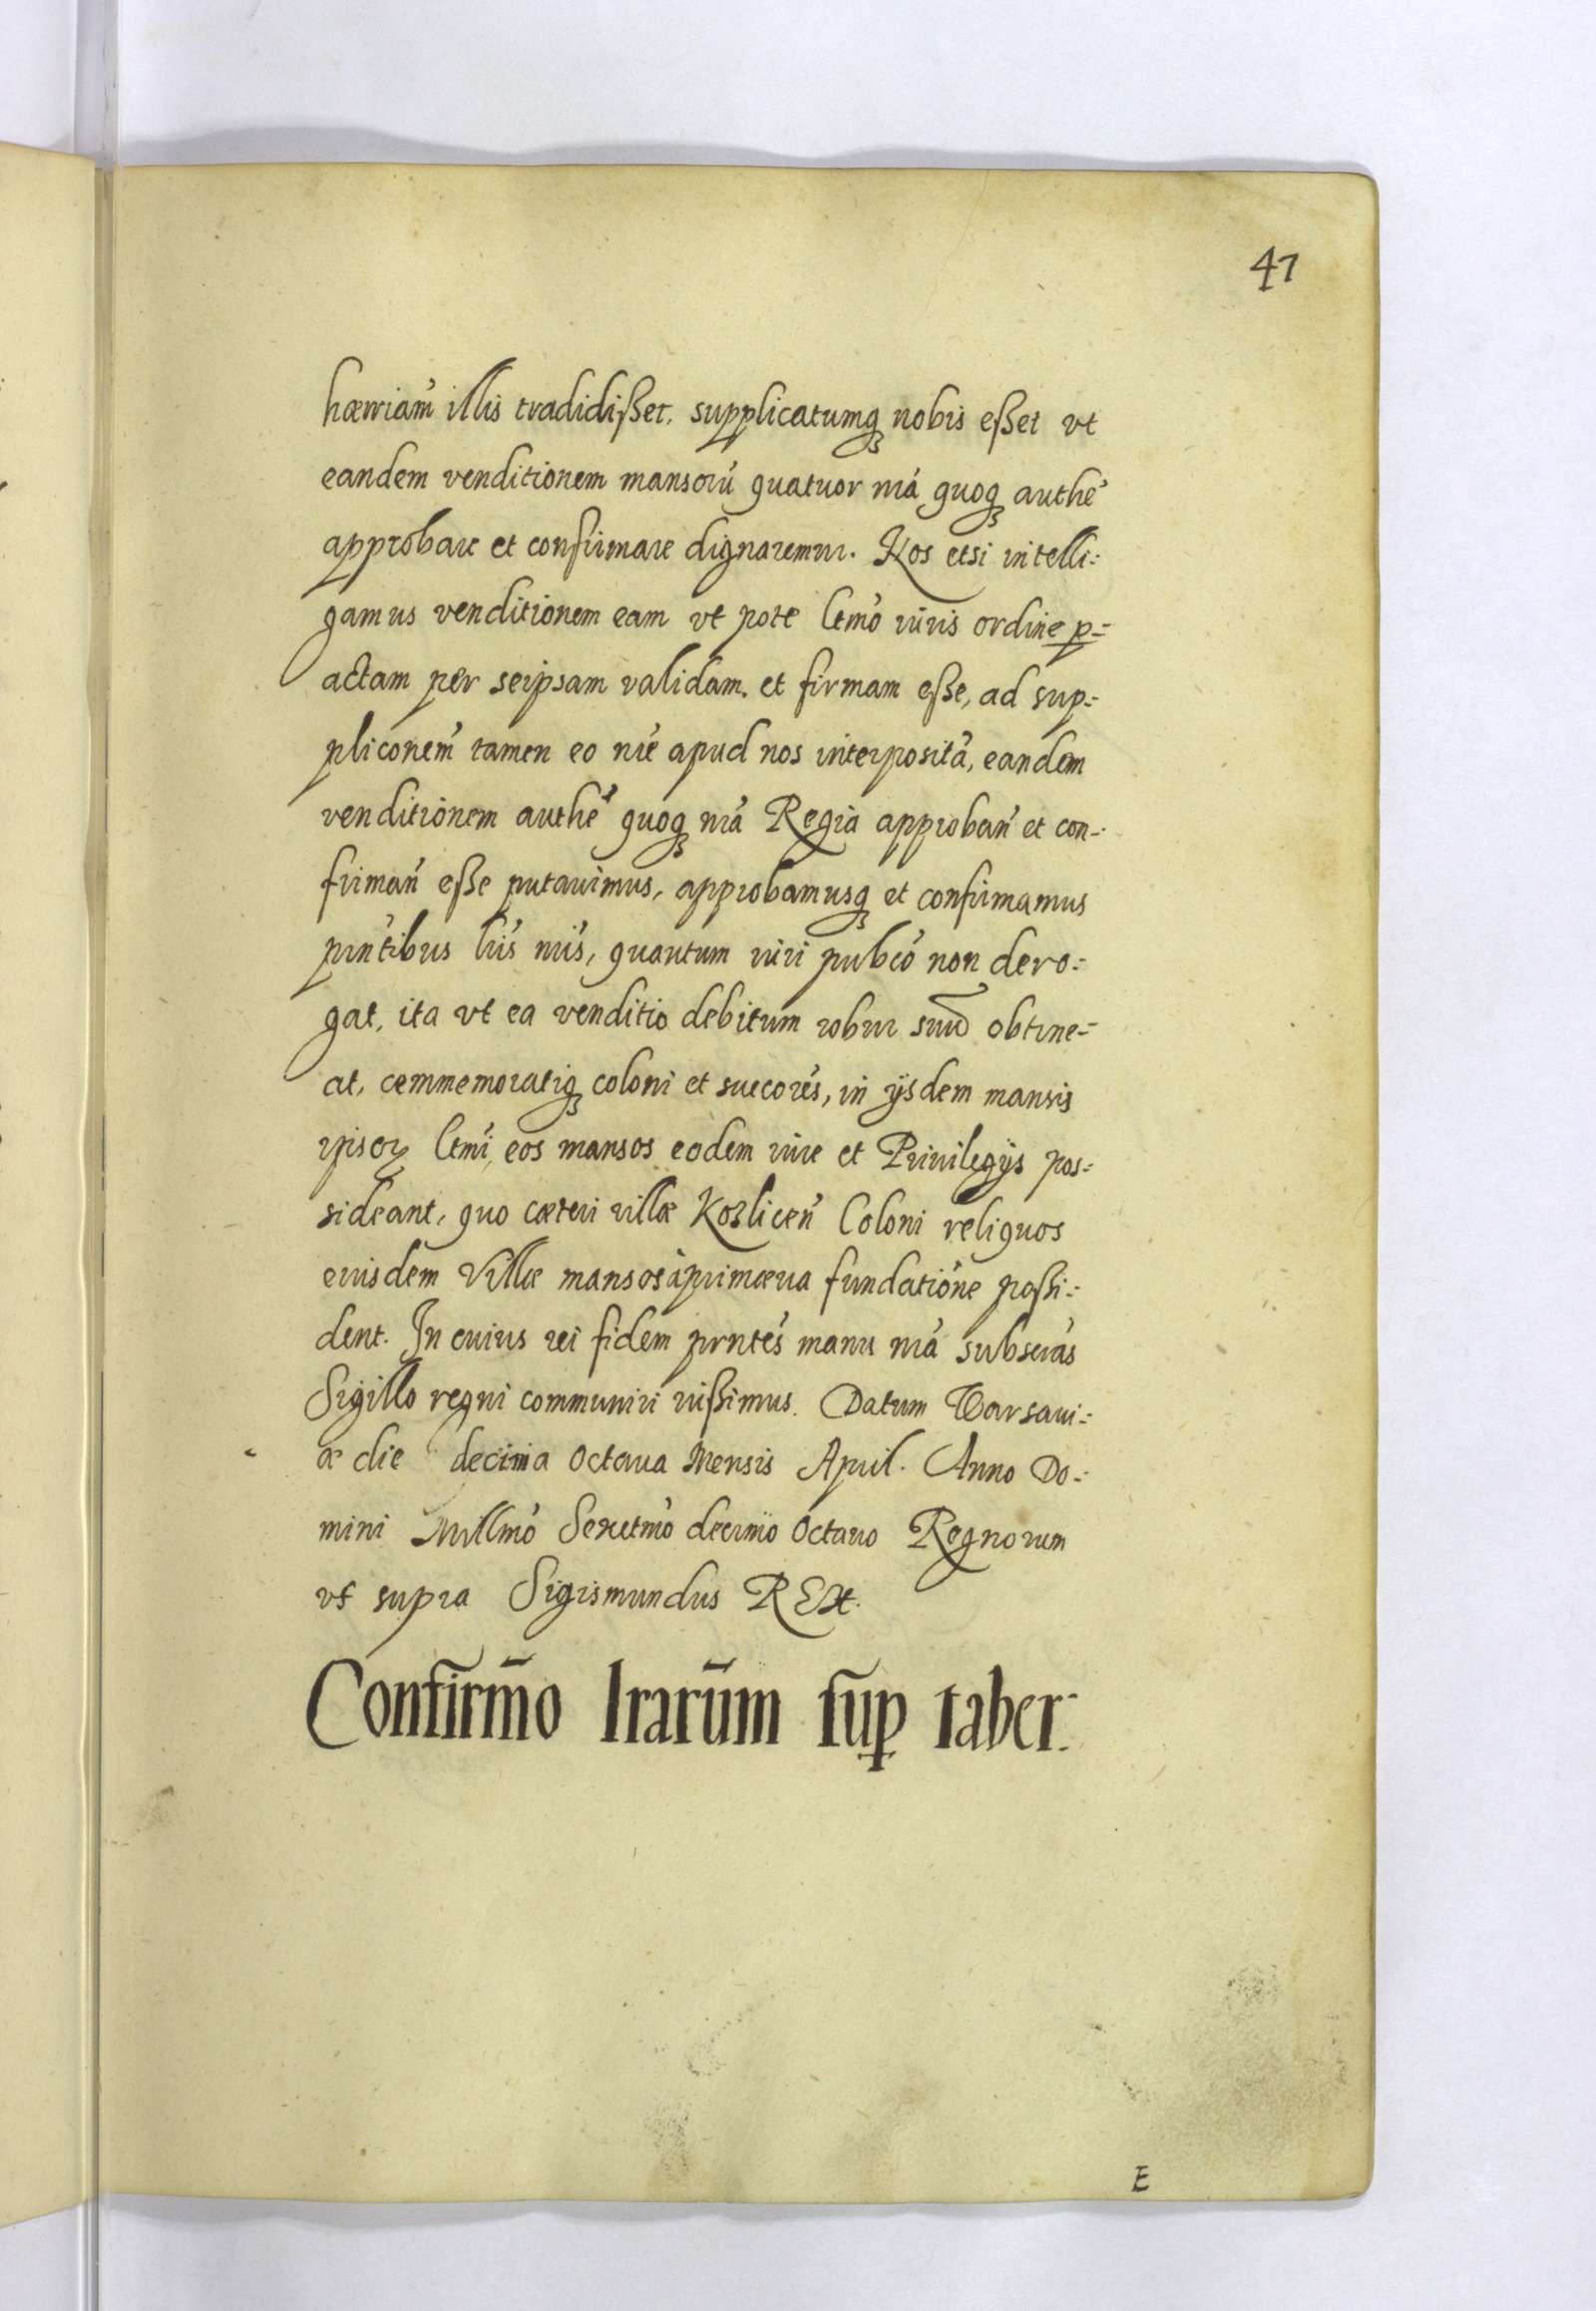 47
hærriam̃ illis tradidißet, supplicatumqꝫ nobis eßet vt
eandem venditionem mansorũ quatuor nrã quoqꝫ authẽ
approbare et confirmare dignaremur. Nos etsi intelli:
gamus venditionem eam vt pote ltmõ iuris ordine p=
actam per seipsam validam. et firmam eße, ad sup=
pliconem̃ tamen eo nrẽ apud nos interpositã, eandem
venditionem authẽ quoqꝫ nrã Regia approbañ et con-
firmañ eße putauimus, approbamusqꝫ et confirmamus
prñtibus lrĩs nrĩs, quantum iuri pubcõ non dero:
gat, ita vt ea venditio debitum robur suũ obtine=
at, cemmemoratiqꝫ coloni et succorẽs, in ijsdem mansis
ipsoꝝ ltmĩ, eos mansos eodem iure et Priuilegijs pos:
sideant, quo cæteri villæ Kozliceñ Coloni reliquos
eiusdem Villæ mansos à primæua fundatiõne poßi:
dent. In cuius rei fidem prntẽs manu nrã subscrãs
Sigillo regni communiri iußimus. Datum Warsaui:
æ die decima Octaua Mensis April. Anno Do:
mini Millmõ Sexctmõ decimo Octauo Regnorum
vt supra Sigismundus REX.
Confirm̃o lrarũm sup taber:
E